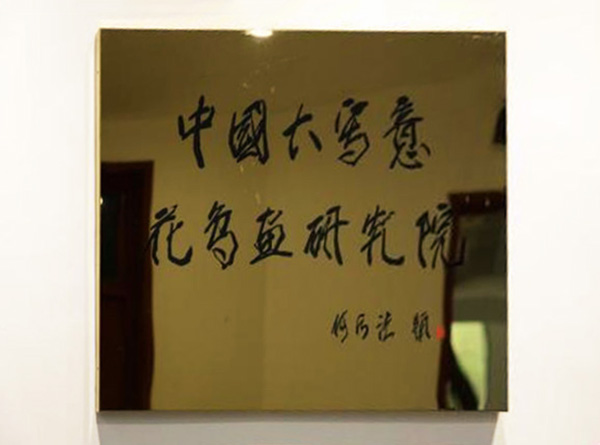 中國大寫意
花鳥畫研究院
何水法 題